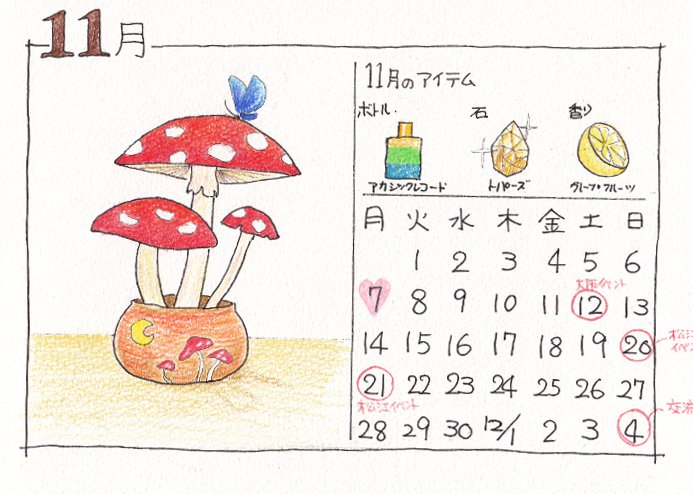 11月
11月のアイテム
ボトル・ 石 香り
アカシックレコード トパーズ グレープフルーツ
月 火 水 木 金 土 日
1 2 3 4 5 6
大阪イベント
7 8 9 10 11 12 13
14 15 16 17 18 19 20 松江
イベン
21 22 23 24 25 26 27
松江イベント
交流
28 29 30 12/1 2 3 4